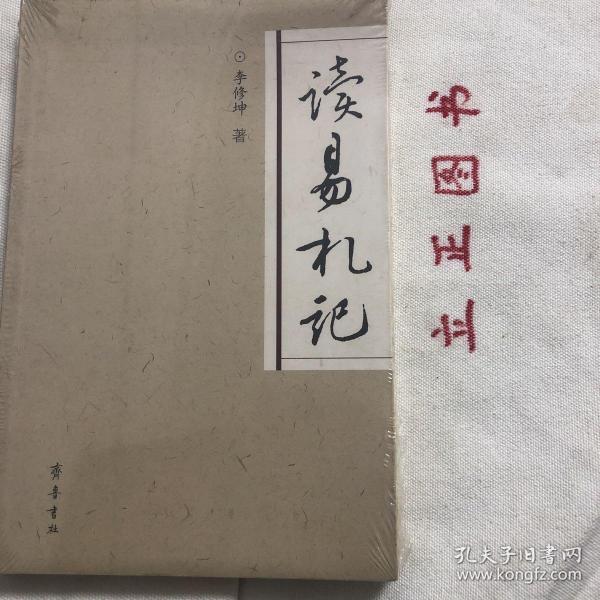 读易札记
⊙李修坤 著
齊鲁書社
立正图书
孔夫子旧书网
www.kongfz.com